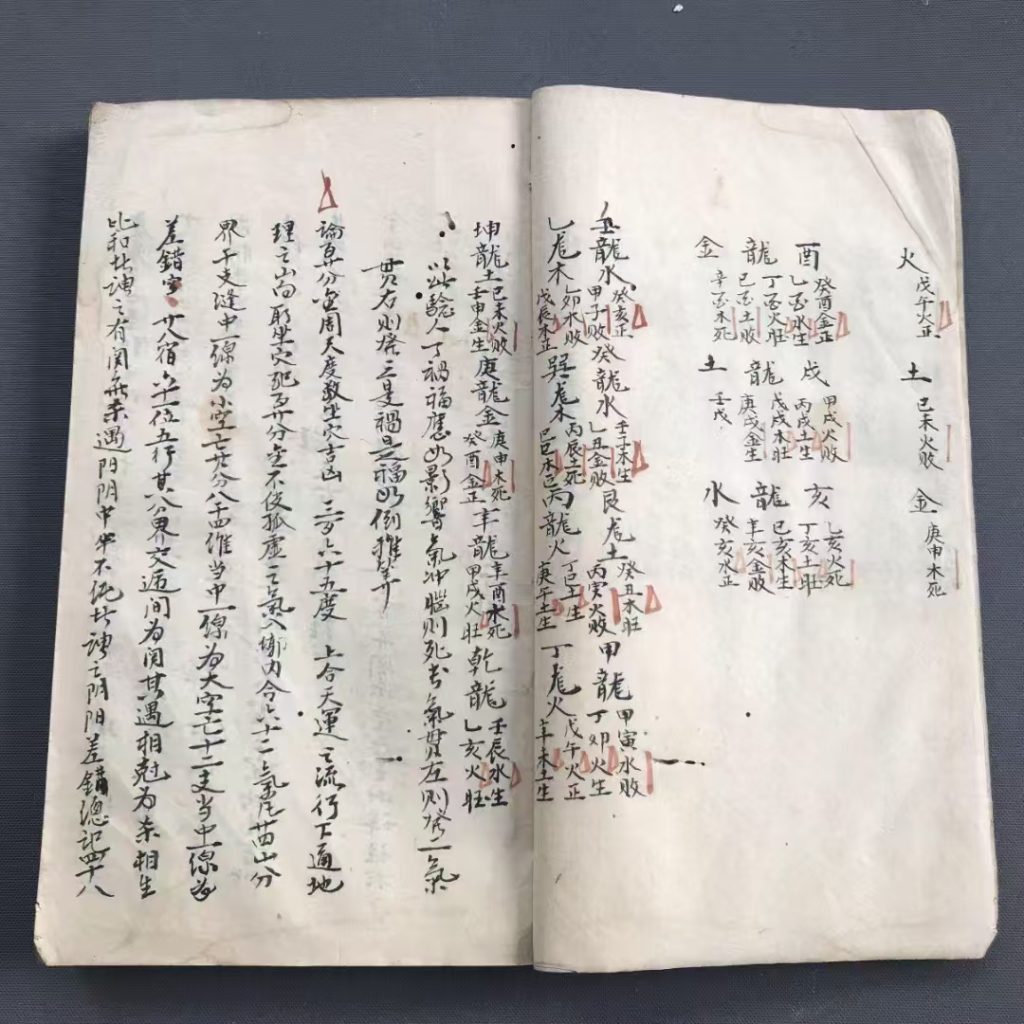 火 戊午火正 土 己未火败 金 庚申木死
酉 癸酉金正 乙酉水生 戌 甲戌火败 丙戌土生 亥 乙亥火死 丁亥土旺
龍 丁酉火旺 己酉土败 龍 戊戌木旺 庚戌金生 龍 己亥木生 辛亥金败
金 辛酉木死 土 壬戌 水 癸亥水正
壬龍水 癸亥正 甲子败 癸龍水 壬子木生 乙丑金败 艮龙土 癸丑木旺 丙寅火败 甲龍 甲寅水败 丁卯火生
乙龙木 乙卯水败 戊辰木正 巽龙木 丙辰土死 己巳木 丙龍火 丁巳土生 庚午土生 丁龙火 戊午火正 辛未土生
坤龍土 己未火败 壬申金生 庚龍金 庚申木死 癸酉金正 辛龍 辛酉水死 甲戌火旺 乾龍 壬辰水生 乙亥火旺
以此驗人丁禍福應如影響氣冲腦則死 氣貫左則發二氣
贯右则 三是禍是福如倒推算
論 分金周天度数坐穴吉凶 三百六十五度 上合天運之流行下通地
理之山向 坐穴 分金不使孤虚之氣入 内合六十二氣 苗山分
界干支縫中一線為小空 分八干四維当中一線為大空七十二支当中一線為
差錯空 廿八宿 六十一位五行其分界交 间為関其遇相尅為杀相生
比和 之有関 杀遇阴阳中 不 阴阳差錯總記四十八